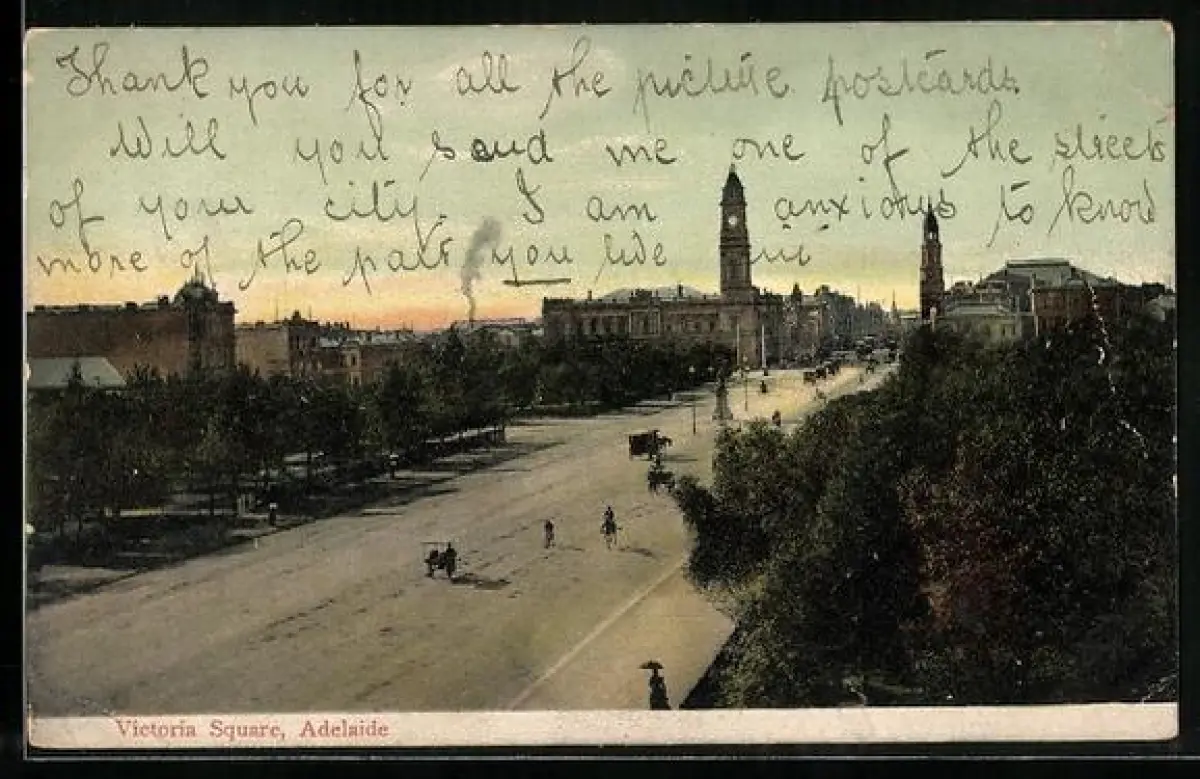 Thank you for all the picture postcards.
Will you send me one of the streets
of your city. I am anxious to know
more of the part you live in.
Victoria Square, Adelaide